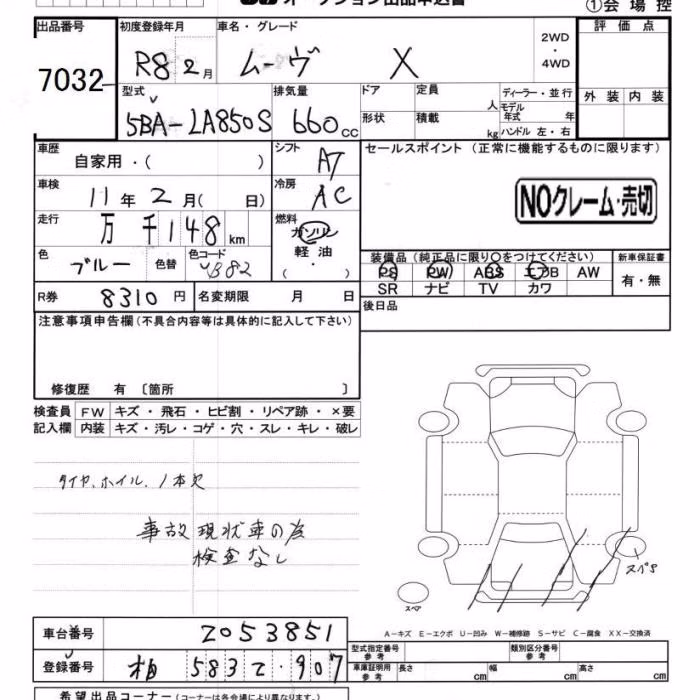 オークション出品申込書
①会場控
出品番号 初度登録年月 車名・グレード 2WD・4WD 評価点
7032 R8 2月 ムーヴ X
型式 排気量 ドア 定員 人 ディーラー・並行 外装 内装
5BA-LA850S 660cc 形状 積載 kg モデル年式 年
ハンドル 左・右
車歴 自家用・( ) シフト AT セールスポイント (正常に機能するものに限ります)
車検 11年2月( 日) 冷房 AC
NOクレーム・売切
走行 万千148km 燃料 ガソリン
軽油
( ・ )
色 ブルー 色替 色コード B82
装備品 (純正品に限り○をつけてください) 新車保証書
PS PW ABS エアB AW 有・無
SR ナビ TV カワ
R券 8310円 名変期限 月 日 後日品
注意事項申告欄(不具合内容等は具体的に記入して下さい)
修復歴 有 〔箇所 〕
検査員 FW キズ・飛石・ヒビ割・リペア跡・×要
記入欄 内装 キズ・汚レ・コゲ・穴・スレ・キレ・破レ
タイヤ、ホイル、1本欠
事故現状車の為
検査なし
スペア
A-キズ E-エクボ U-凹み W-補修跡 S-サビ C-腐食 XX-交換済
車台番号 2053851
型式指定番号 参考 類別区分番号 参考
登録番号 柏 583 て・907
車庫証明用 参考 長さ cm 幅 cm 高さ cm
希望出品コーナー (コーナーは各会場により異なります。)